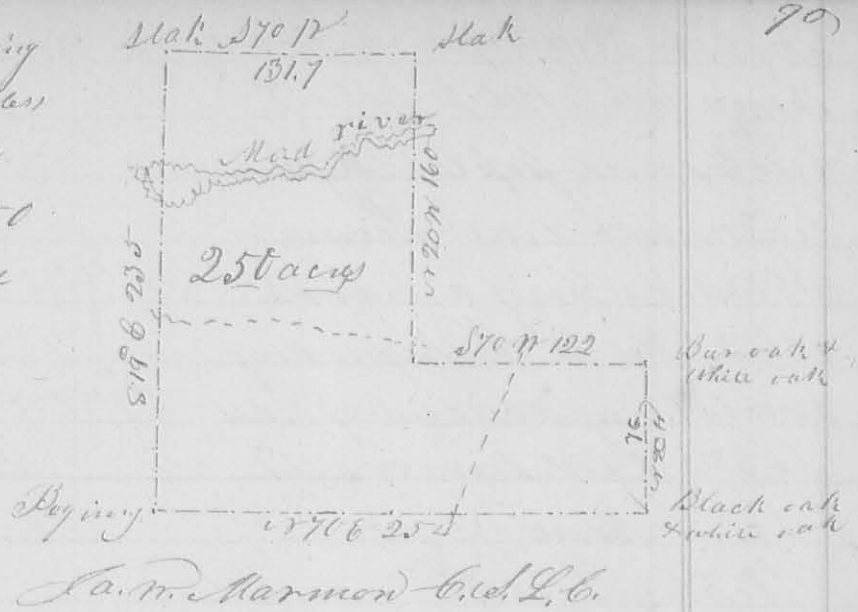 90
Stak S 70 W Stak
131.7
Mad river
N 20 W 160
250 acres
S 19 E 235
S 70 W 122
Bur oak &
White oak
76
N 20 W
Begining
N 70 E 254
Black oak
& white oak
Ja. W. Marmon C. S. L. C.